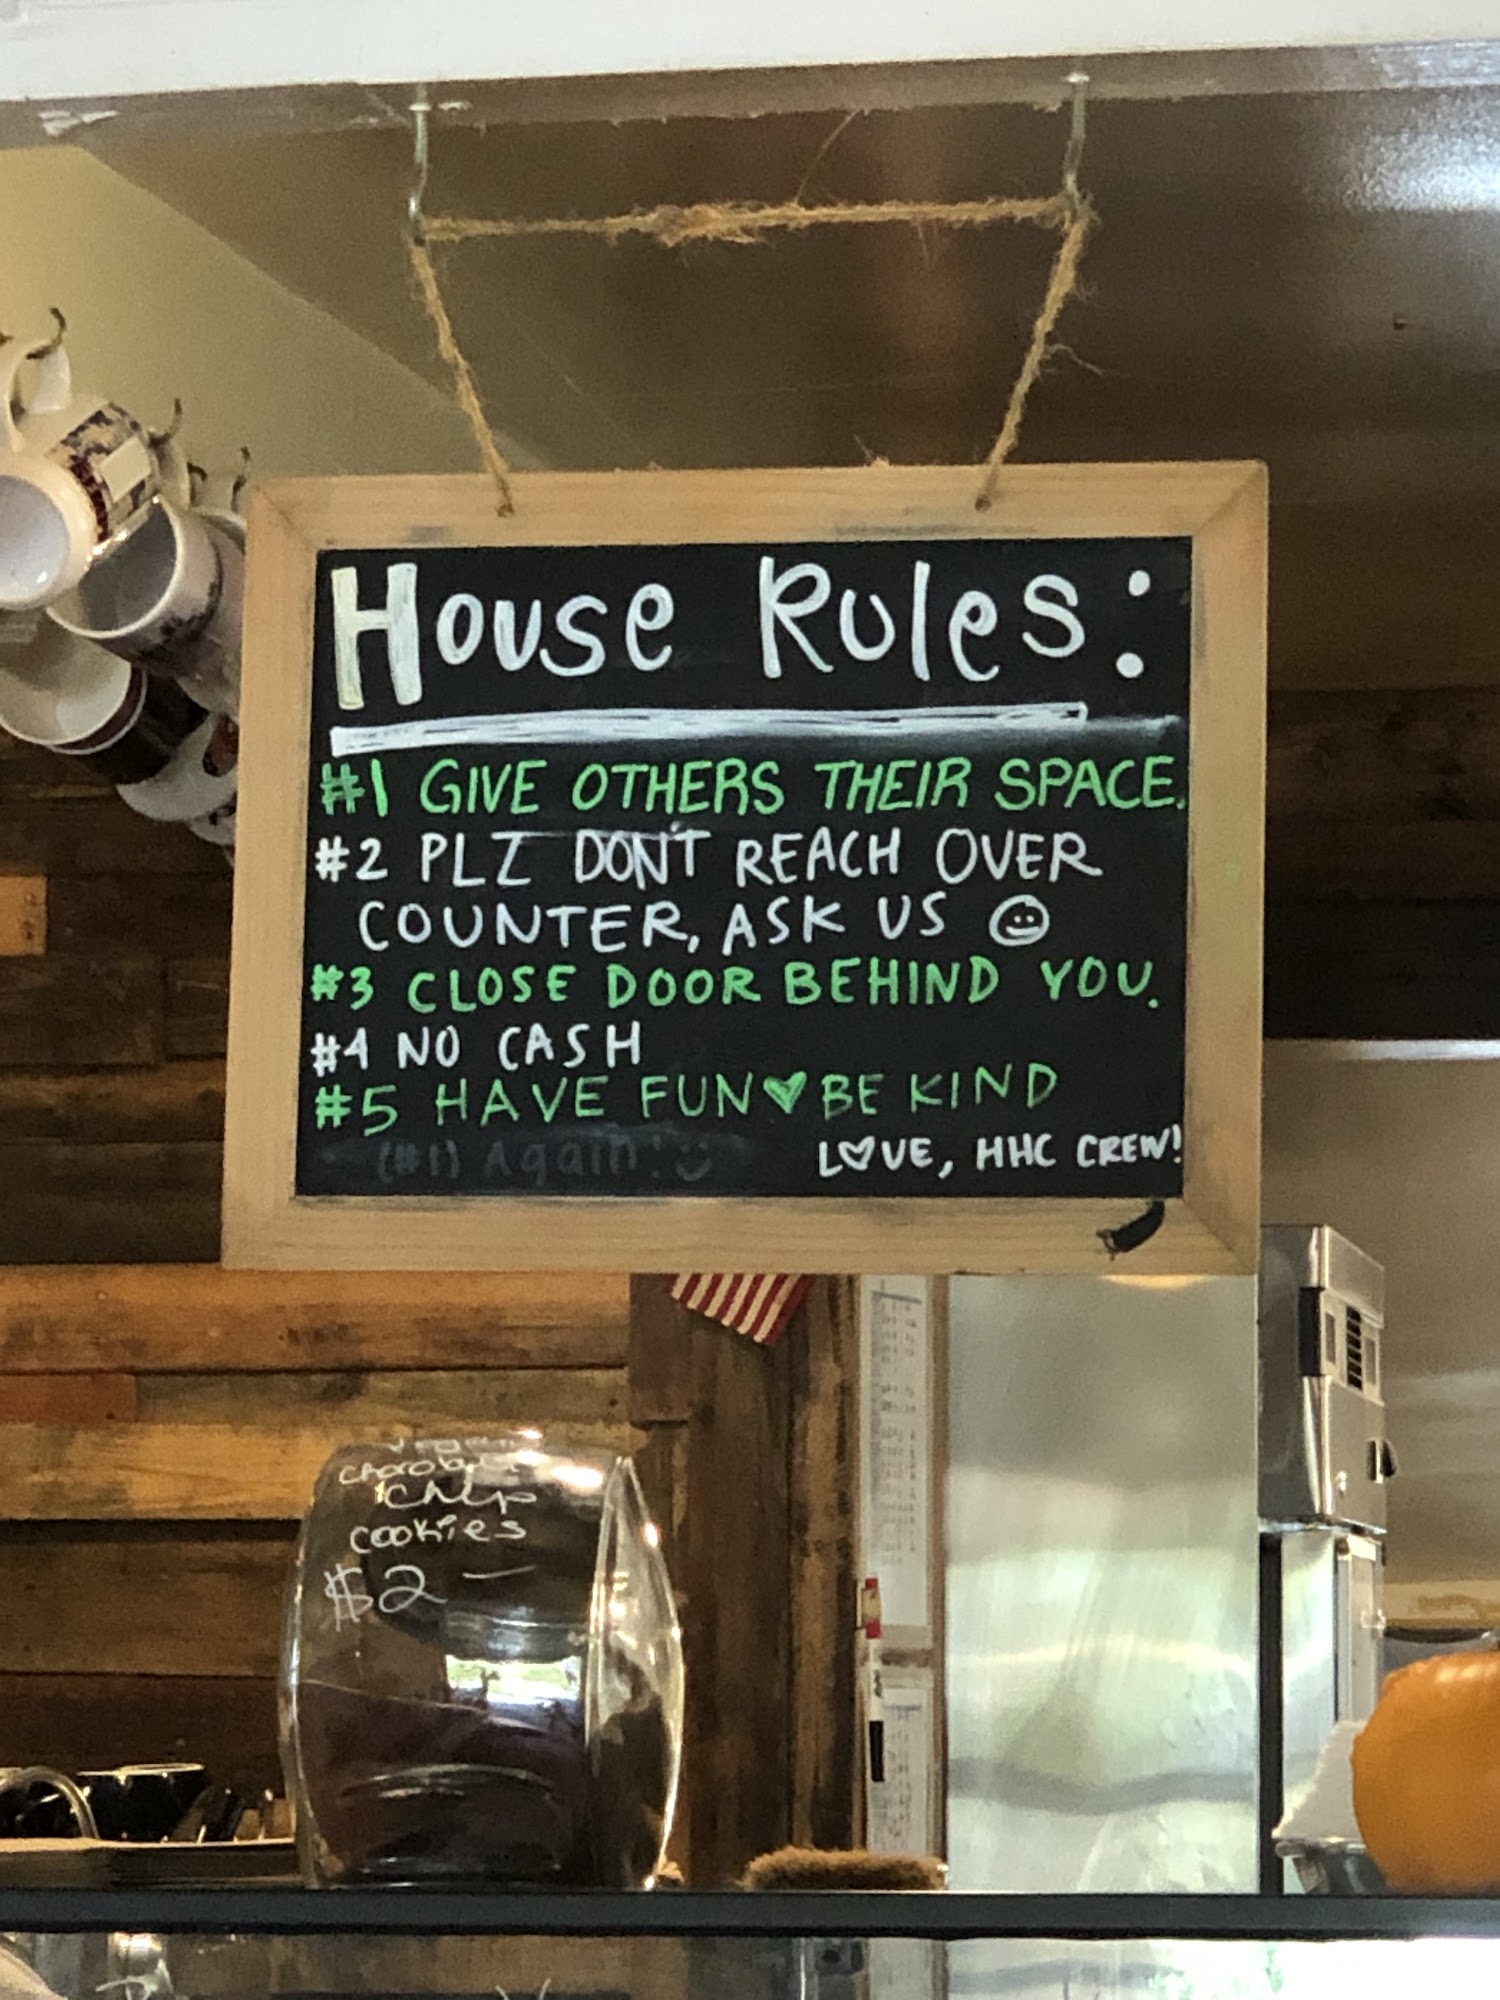 House Rules:
#1 GIVE OTHERS THEIR SPACE.
#2 PLZ DON'T REACH OVER
COUNTER, ASK US
#3 CLOSE DOOR BEHIND YOU.
#4 NO CASH
#5 HAVE FUN♥BE KIND
(#1) Again! :)
LOVE, HHC CREW!
chocolate
chip
cookies
$2